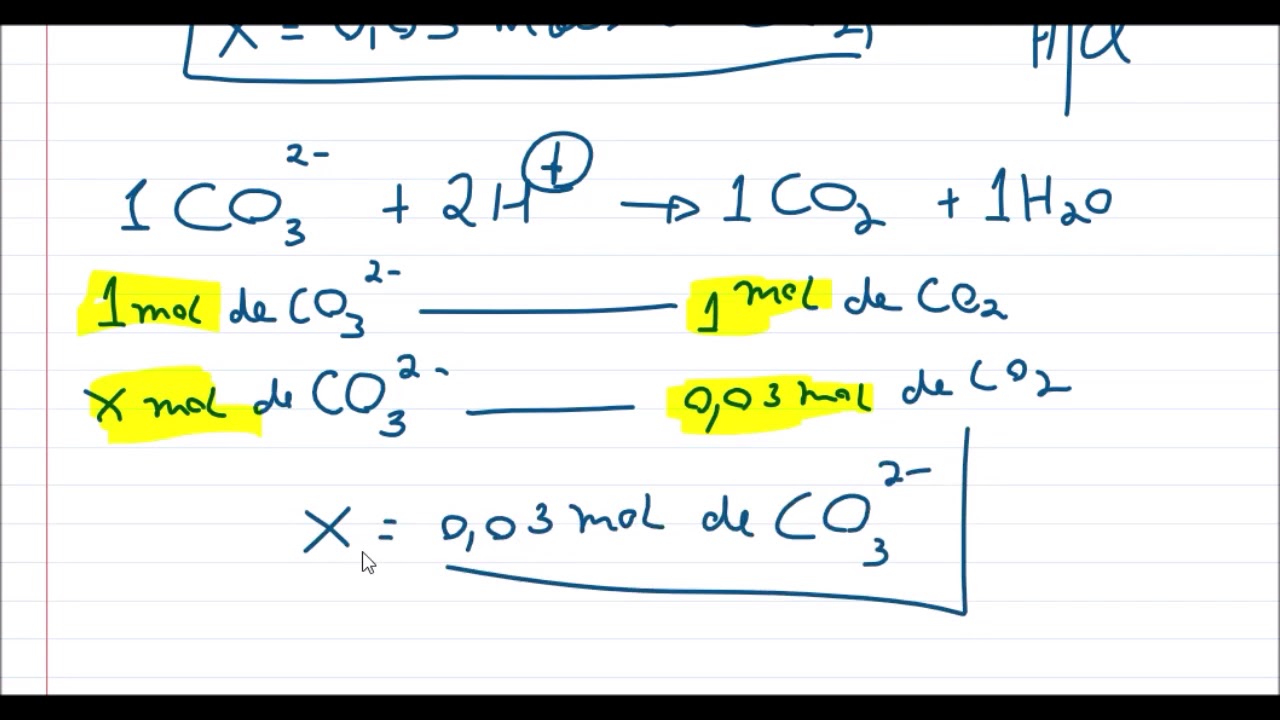 X = 0,03
1 CO₃²⁻ + 2H⁺ → 1 CO₂ + 1 H₂O
1 mol de CO₃²⁻ ——— 1 mol de CO₂
X mol de CO₃²⁻ ——— 0,03 mol de CO₂
X = 0,03 mol de CO₃²⁻